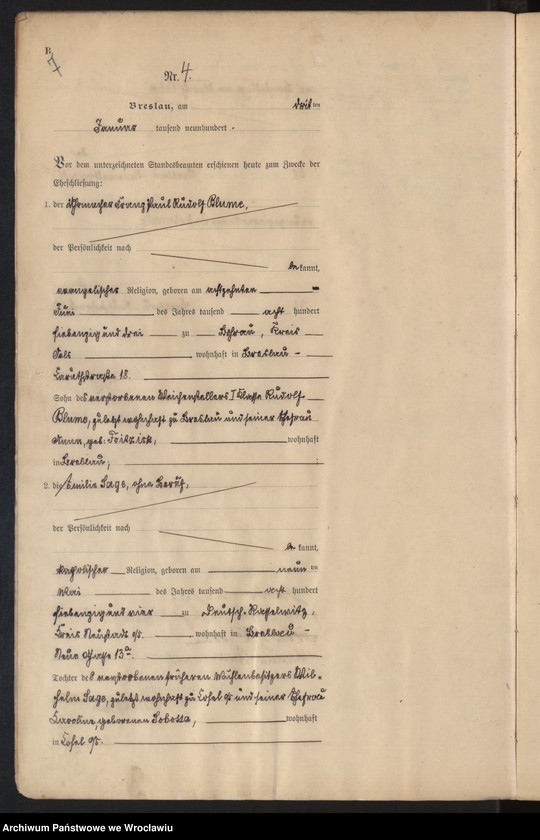 B.
7
Nr. 4.
Breslau, am dritten
Januar tausend neunhundert
Vor dem unterzeichneten Standesbeamten erschienen heute zum Zwecke der
Eheschließung:
1. der Uhrmacher Franz Paul Rudolf Blume,
der Persönlichkeit nach
be kannt,
evangelischer Religion, geboren am achtzehnten
Juni des Jahres tausend acht hundert
siebenzig und drei zu Bohrau, Kreis
Oels, wohnhaft in Breslau -
18.
Sohn des verstorbenen Weichenstellers I Klasse Rudolf
Blume, zuletzt wohnhaft zu Breslau und seiner Ehefrau
Anna, geb: wohnhaft
in Breslau, ;
2. die Emilie Sago, ohne Beruf,
der Persönlichkeit nach
be kannt,
katholischer Religion, geboren am neun ten
Mai des Jahres tausend acht hundert
siebenzig und vier zu Deutsch-Rasselwitz,
Kreis Neustadt O/S. , wohnhaft in Breslau -
Neue Gasse 13a.
Tochter des verstorbenen früheren Mühlenbesitzers Wil-
helm Sago, zuletzt wohnhaft zu Cosel O/S und seiner Ehefrau
Caroline, geborenen Sobotta, wohnhaft
in Cosel O/S.
Archiwum Państwowe we Wrocławiu